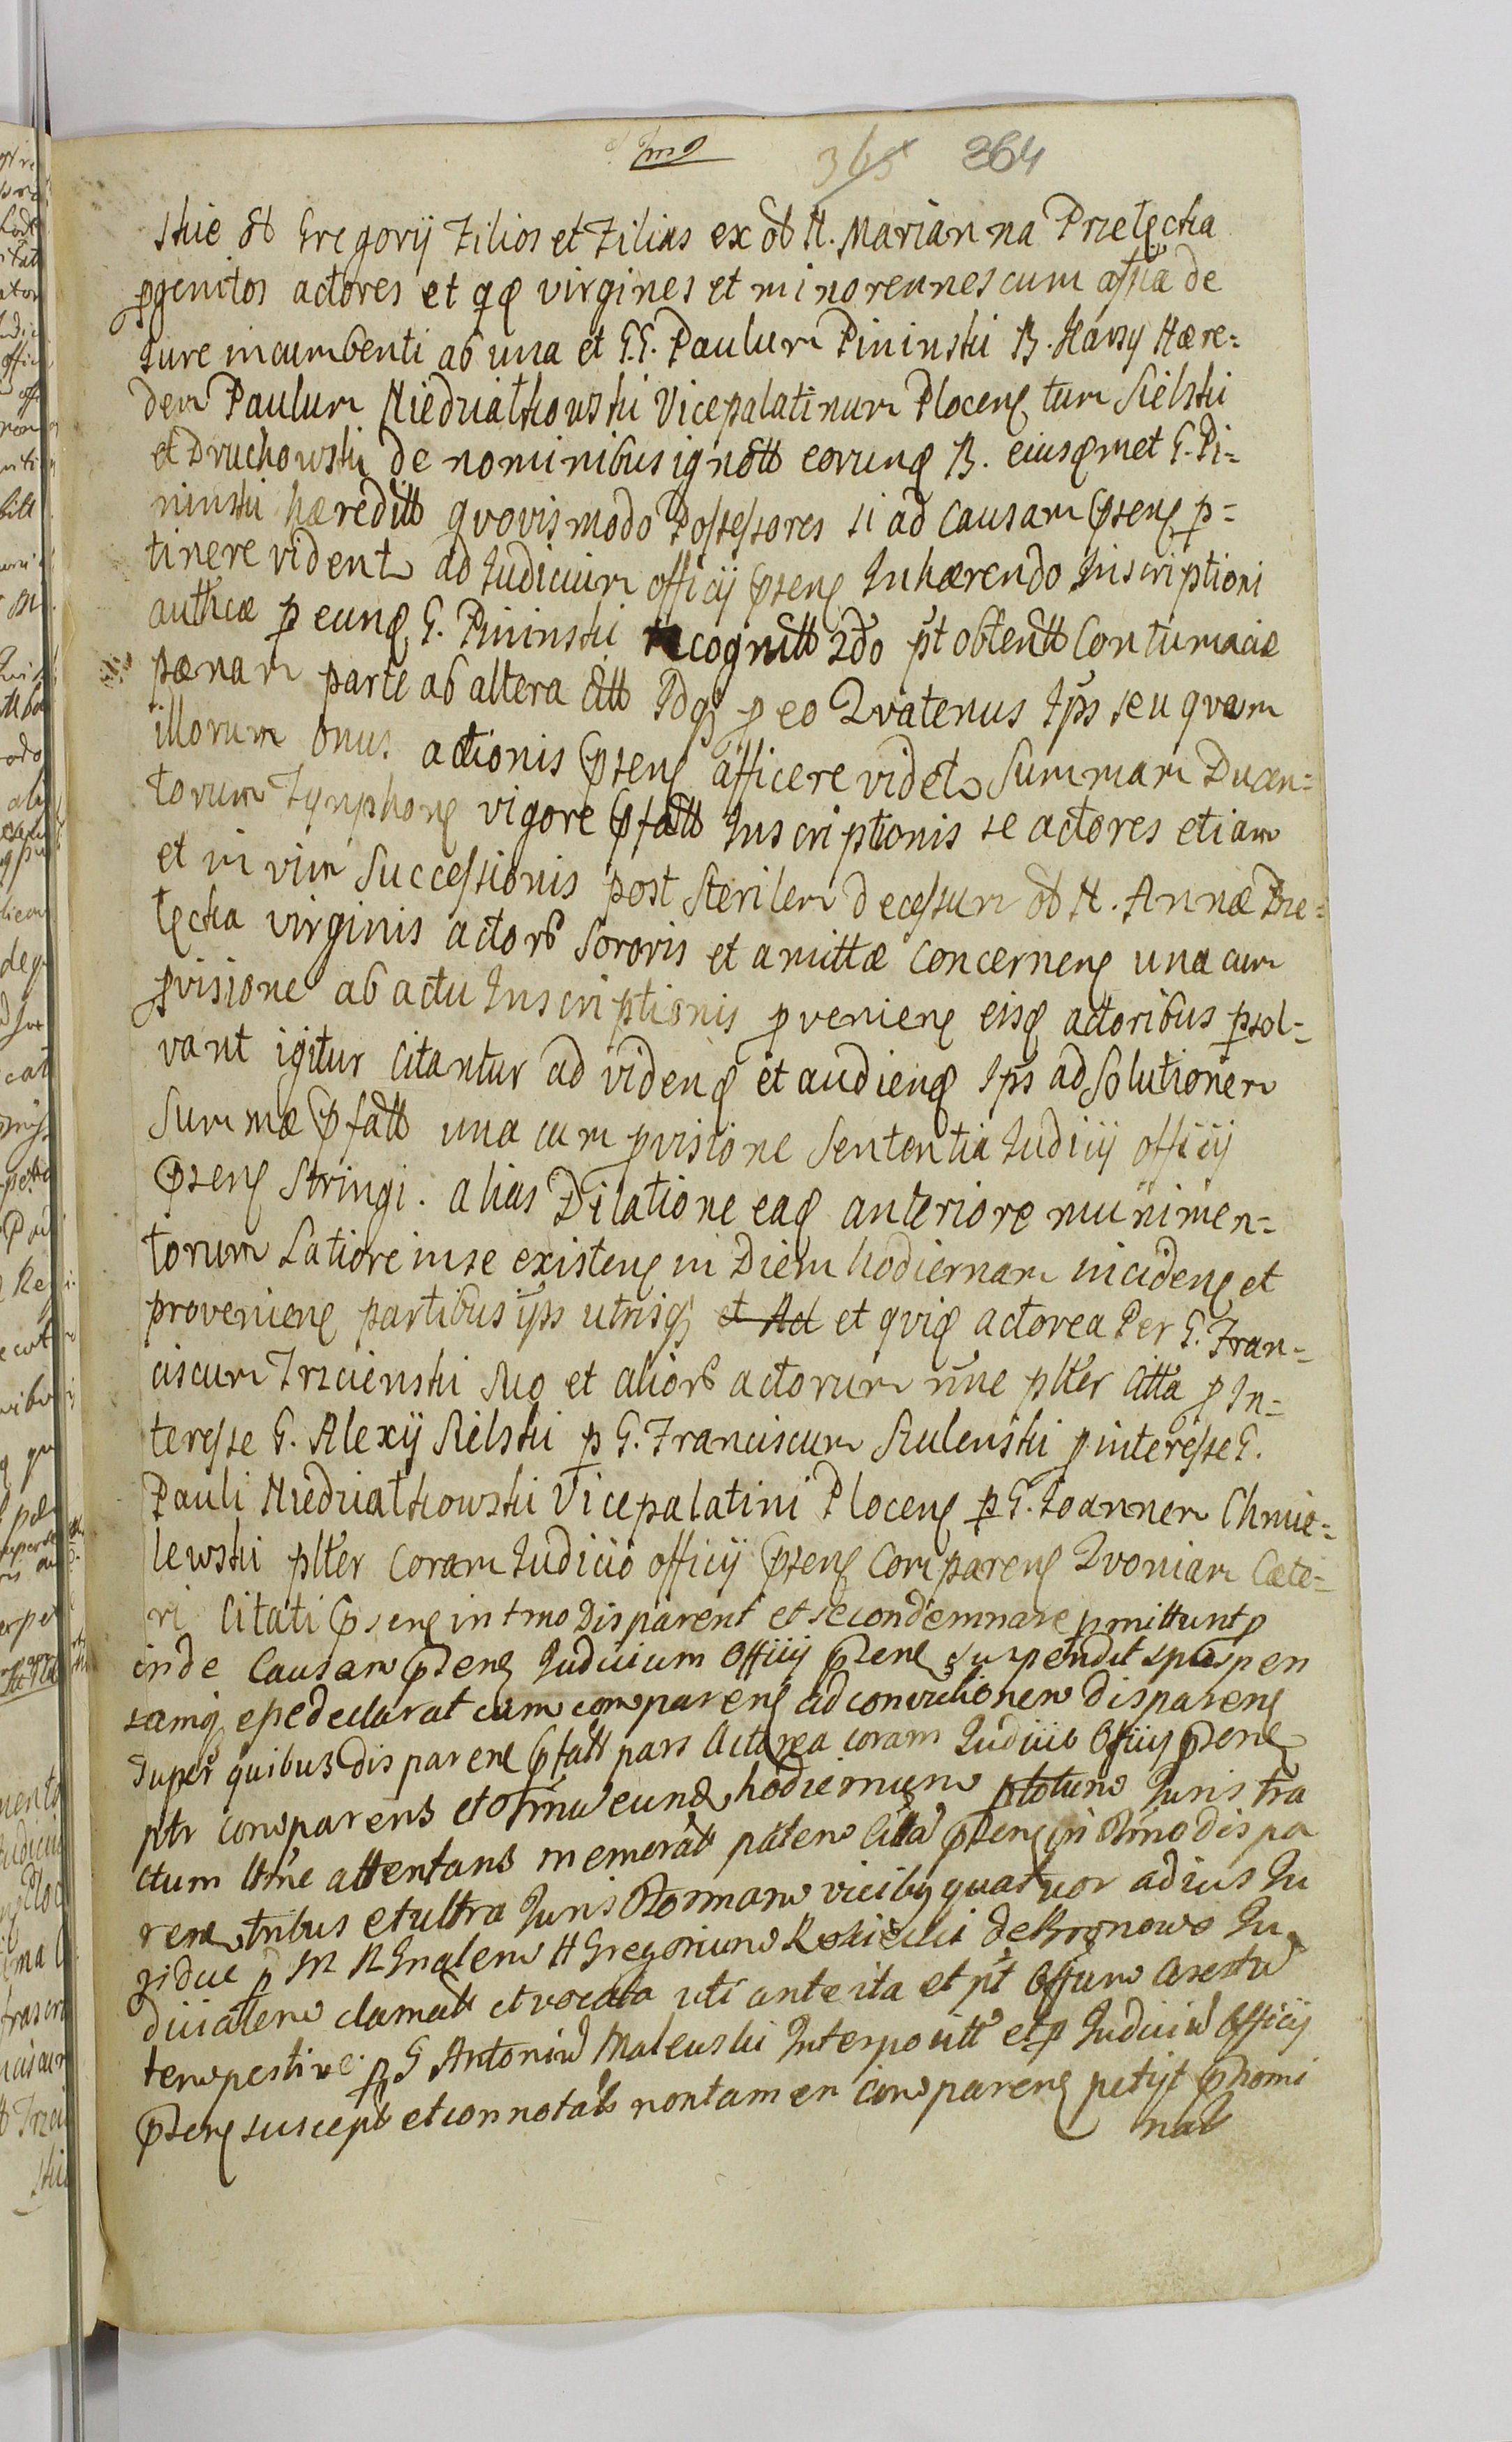 365 364
skie olt Gregorij Filios et Filias ex olt N. Marianna Przetęcka
pgenitos actores et qq virgines et minorennes cum assña de
Jure incumbenti ab una et G.G. Paulum Pininski B. Karsy Hære=
dem Paulum Niedzialkowski Vicepalatinum Plocens tum Sielski
et Druchowski de nominibus ignott eorunq B. eiusqmet G. Pi=
ninski hæreditt qvovismodo Possessores si ad causam psens p=
tinere vident ad Judicium officij psens Inhærendo Inscriptioni
authcæ p eunq G. Pininski recognitt 2do pt obtentt Contumaciæ
pænam parte ab altera Citt Idq p eo Qvatenus Ips seu qvem
illorum onus actionis psens afficere videt Summam Ducen=
torum Tynphons vigore pfatt Inscriptionis se actores etiam
et in vim Successionis post Sterilem decessum olt N. Annæ Prze=
tęcka virginis actorb Sororis et amittæ concernens una cum
pvisione ab actu Inscriptionis pveniens eisq actoribus psol=
vant igitur citantur ad videnq et audienq Ips ad Solutionem
Summæ pfatt una cum pvisione Sententia Judicij officij
psens Stringi. alias Dilatione eaq anteriore munimen=
torum Latiore in se existens in Diem hodiernam incidens et
proveniens partibus ips utrisq et Act et qviq actorea Per G. Fran=
ciscum Trzcienski Suo et aliorb actorum nñe plter Citta p In=
teresse G. Alexij Sielski p G. Franciscum Kulenski p interesse G.
Pauli Niedzialkowski Vicepalatini Plocens p G. Joannem Chmie=
lewski plter Coram Judicio officij psens Compareng Qvoniam Cæte=
ri Citati psens in tmo Disparent et se condemnare pmittunt p
inde Causam psens Judicium Officij psens suspendit
samq epe declarat cum comparens ad convictionem disparens
Super quibus disparens pfatt pars Actorea coram Judicio Officij psens
ptr comparens et eunq hodiernum Juris tra
ctum ltme attentans memoratt patem Citta psens in tmo dispa
rens tribus et ultra Juris vicibq quatuor ad ius Ju
ridice p M R Gnalem H Gregorium de Bronowo Ju
dicialem clamatt et vocata uti ante ita et pt Offum Aresta
tempestive p G Antoniu Malewski Interpositt et p Judiciu Officij
psens suscept et connotatt nontamen comparens petijt pnomi
nat